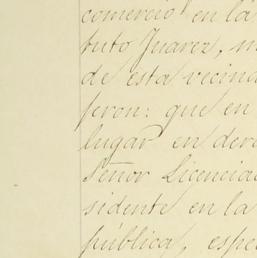 comercio en la
tuto Juarez, m
de esta vecind
peron: que en
lugar en dere
Señor Licencia
sidente en la
pública, espe